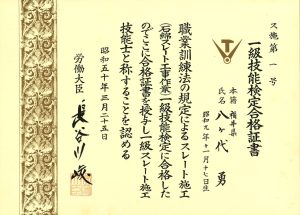 ス施第一号
一級技能検定合格証書
本籍 福井県
氏名 八ヶ代 勇
昭和九年十一月十七日生
職業訓練法の規定によるスレート施工
(石綿スレート工事作業)一級技能検定に合格した
のでここに合格証書を授与し一級スレート施工
技能士と称することを認める
昭和五十年三月二十五日
労働大臣 長谷川峻